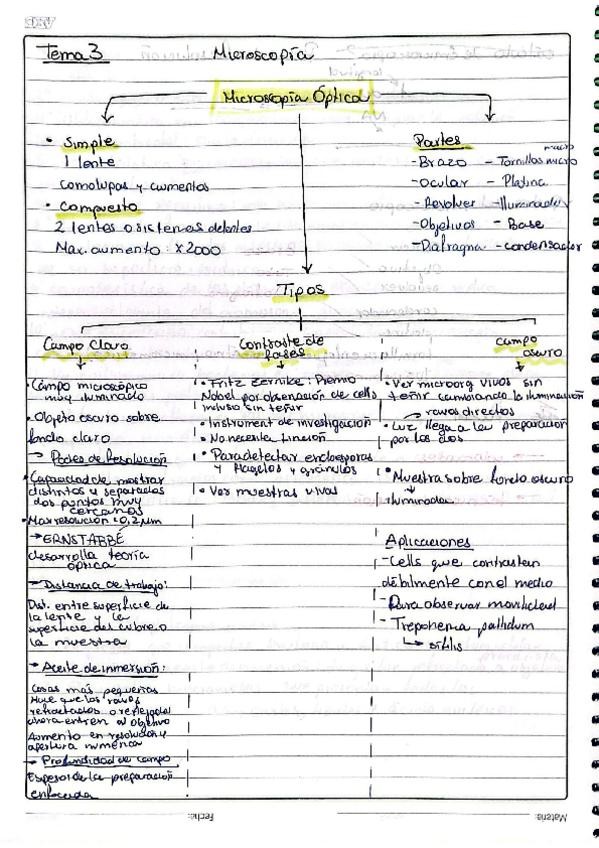 Tema 3 Microscopía
Microscopía Óptica
• Simple
1 lente
como lupas y aumentos
• Compuesto
2 lentes o sistemas de lentes
Max. aumento: x2000
Partes
- Brazo
- Ocular
- Revolver
- Objetivos
- Diafragma
macro
- Tornillos micro
- Platina
- Iluminador
- Base
- condensador
Tipos
Campo Claro
• Campo microscópico
muy iluminado
• Objeto oscuro sobre
fondo claro
→ Poder de Resolución
• Capacidad de mostrar
distintos y separados
dos puntos muy
cercanos
• Max resolución: 0,2 μm
→ ERNST ABBÉ
desarrolla teoría
óptica
→ Distancia de trabajo:
Dist. entre superficie de
la lente y la
superficie del cubre o
la muestra
→ Aceite de inmersión:
Cosas más pequeñas
Hace que los rayos
refractados o reflejados
ahora entren al objetivo
Aumento en resolución y
apertura numérica
→ Profundidad de campo
Espesor de la preparación
enfocada
Contraste de
fases
• Fritz Zernike: Premio
Nobel por observación de cells
incluso sin teñir
• Instrument de investigación
• No necesita tinción
• Para detectar endosporas
y flagelos y gránulos
• Ver muestras vivas
campo
oscuro
• Ver microorg vivos sin
teñir cambiando la iluminación
→ rayos directos
• Luz llega a la preparación
por los
• Muestra sobre fondo oscuro
iluminada
Aplicaciones
- Cells que contrasten
débilmente con el medio
- Para observar movilidad
- Treponema pallidum
↳ sífilis
Fecha:
Materia: